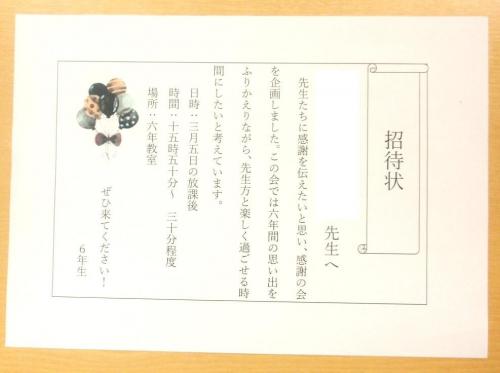 招待状
先生へ
先生たちに感謝を伝えたいと思い、感謝の会
を企画しました。この会では六年間の思い出を
ふりかえりながら、先生方と楽しく過ごせる時
間にしたいと考えています。
日時：三月五日の放課後
時間：十五時五十分～　三十分程度
場所：六年教室
ぜひ来てください！
６年生